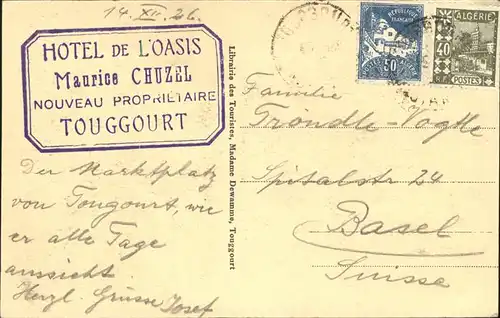 14. XII. 26.
HOTEL DE L'OASIS
Maurice CHUZEL
NOUVEAU PROPRIÉTAIRE
TOUGGOURT
Der Marktplatz
von Tougourt, wie
er alle Tage
aussieht.
Herzl. Grüsse Josef
Librairie des Touristes, Madame Dewamme, Touggourt
RÉPUBLIQUE FRANÇAISE
50
ALGÉRIE
40
POSTES
Familie
Trondle-Vogtle
Spitalstr 24
Basel
Suisse